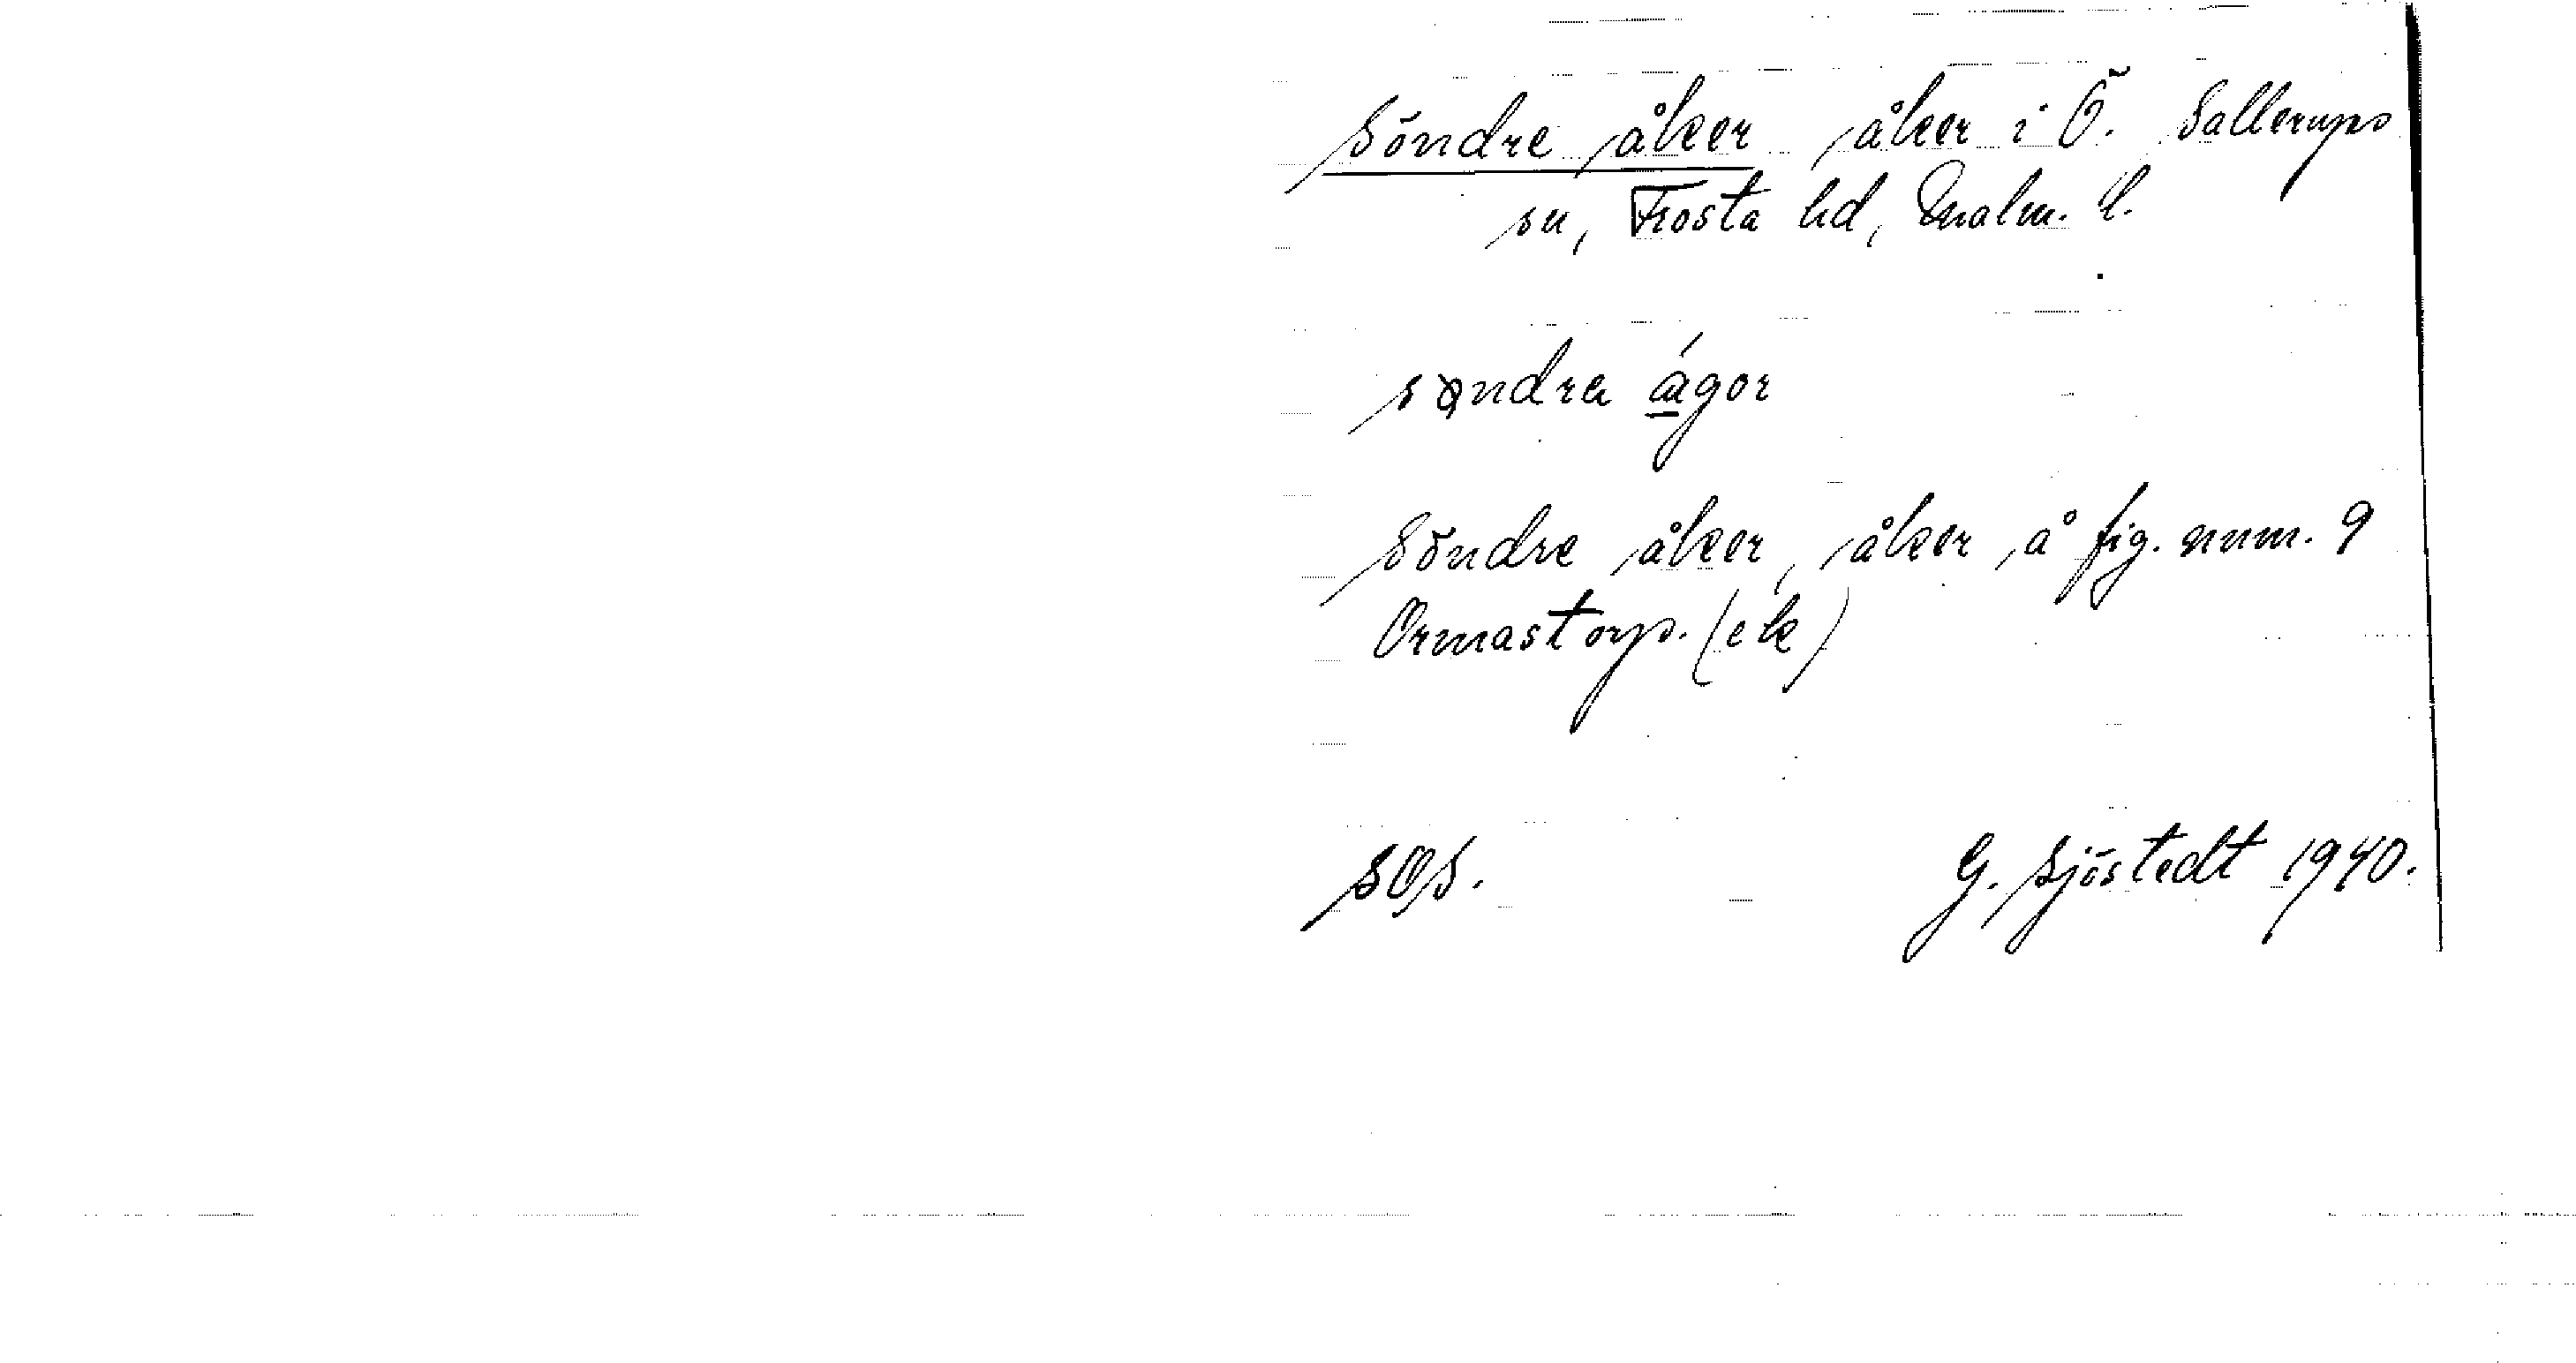 Söndre åker åker i Ö. Sallerups
sn, Frosta hd, Malm. l.
søndra ágor
Söndre åker, åker å fig. num. 9
Ormastorp. (ek)
SOS. G. Sjöstedt 1940.